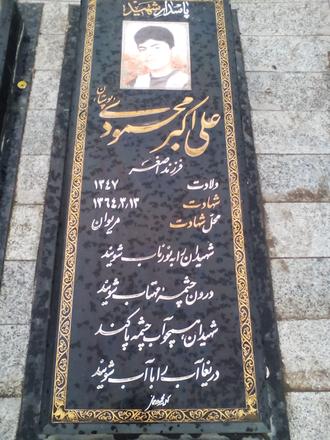 پاسدار شهید
علی اکبر محمودی
فرزند اصغر
ولادت ۱۳۴۷
شهادت ۱۳۶۴,۳,۱۳
محل شهادت مریوان
شهیدان را به نور ناب شویند
درون چشمه مهتاب شویند
شهیدان همچو آب چشمه پاکند
دریغا آب را با آب شویند